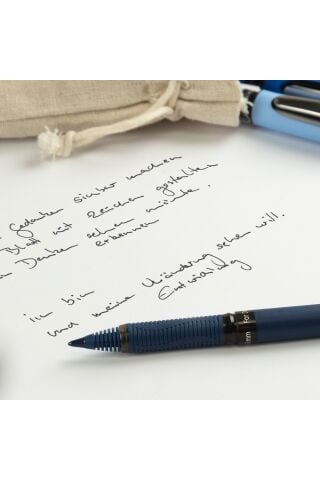 Gedanken sichtbar machen
Blatt mit Zeichen gestalten
Denken sehen würde.
erkennen
ich bin
und meine Veränderung sehen will.
Entwicklung
mm For